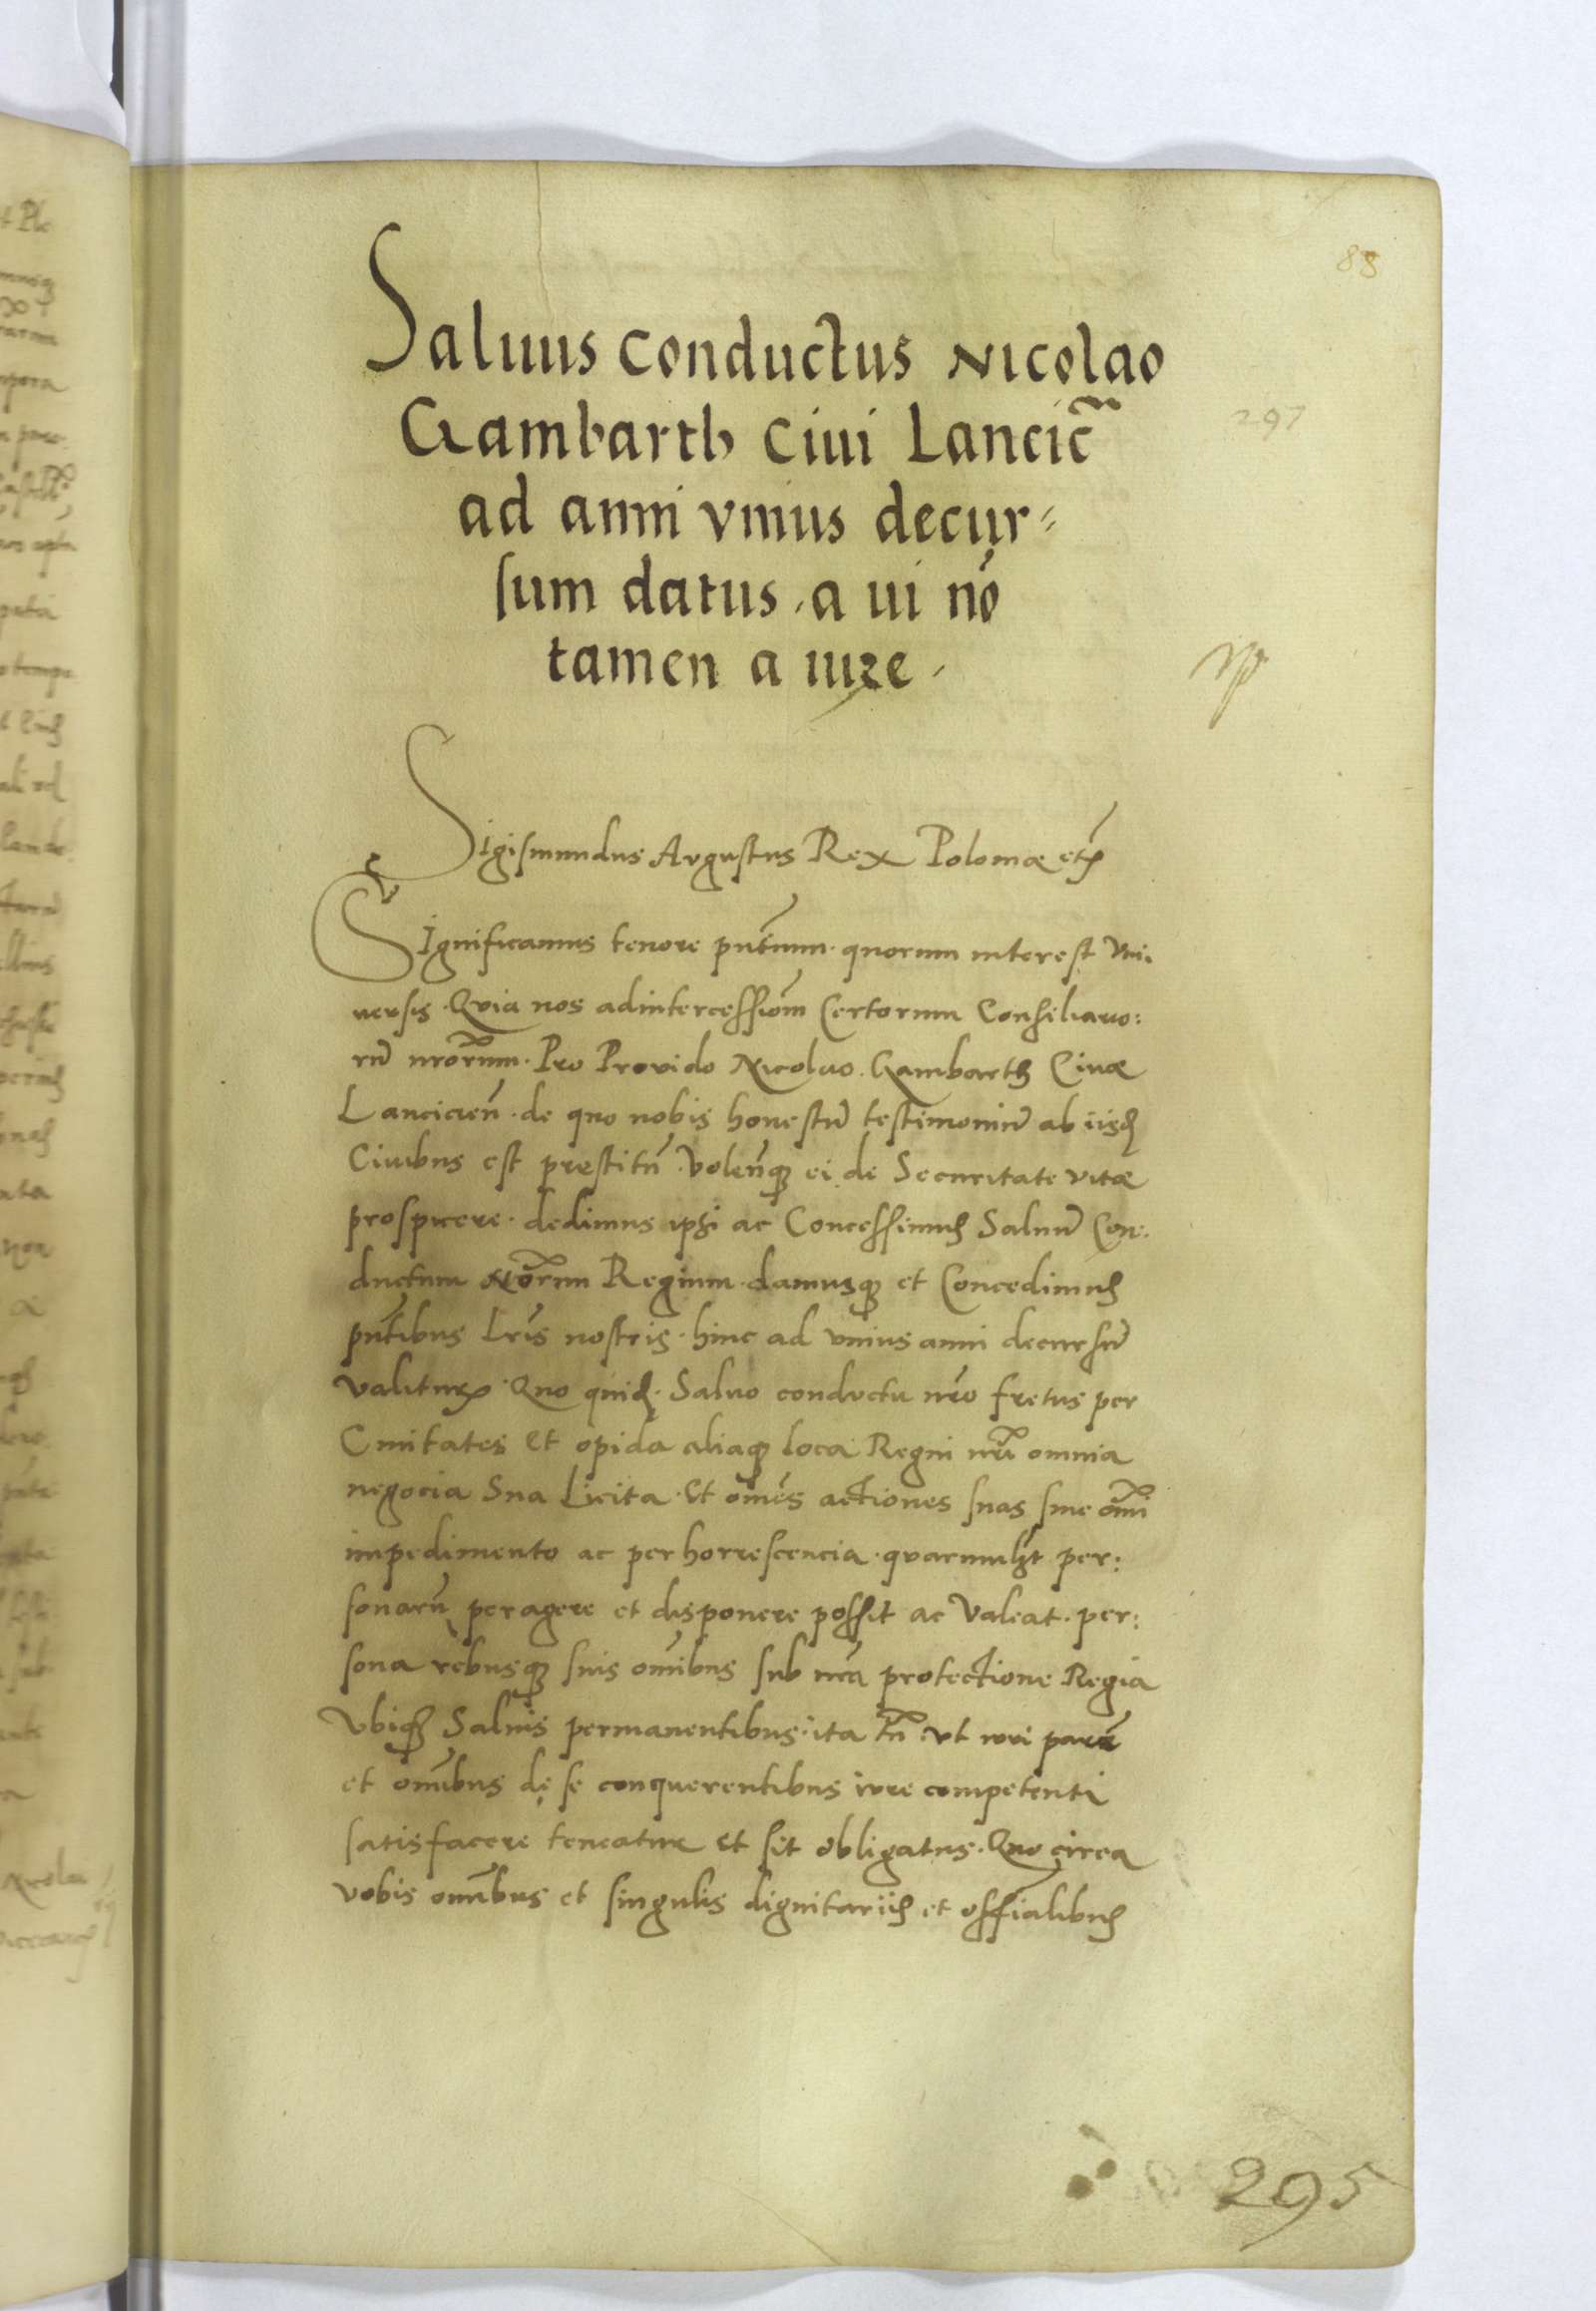 88
Saluus conductus Nicolao
Gambarth Ciui Lancic̃
297
ad anni vnius decur⸗
sum datus, a ui nõ
tamen a iure.
Sigismundus Augustus Rex Poloniæ etc
Significamus tenore pñtium. quorum interest Vni.
uersis. Quia nos adintercessiom̃ Certorum Consiliario:
rũ nr̃orum. Pro Prouido Nicolao. Gambarth Ciuæ
Lancicieñ. de quo nobis honestũ testimoniũ ab iisd
Ciuibus est prestitũ. Volen̄q ei de Securitate vitæ
prospicere. dedimus ipsi ac Concessimus Saluũ Con:
ductum Nr̃orum Regium. damusq et Concedimus
pñtibus Lr̃is nostris. hinc ad vnius anni decursũ
Valitur. Quo quid. Saluo conductu nr̃o fretus per
Ciuitates et opida aliaq loca Regni nr̃i omnia
negocia Sua Licita. Et om̃es actiones suas sine om̃i
impedimento ac perhorrescencia. quarumlibt per:
sonarũ peragere et disponere possit ac Valeat. per:
sona rebusq suis om̃ibus sub nr̃a protectione Regia
Vbiq Saluis permanentibus. ita tñ. vt iuri
et om̃ibus de se conquerentibus iure competenti
satisfacere teneatur et sit obligatus. Quo circa
vobis om̃ibus et singulis dignitariis et offialibus
295